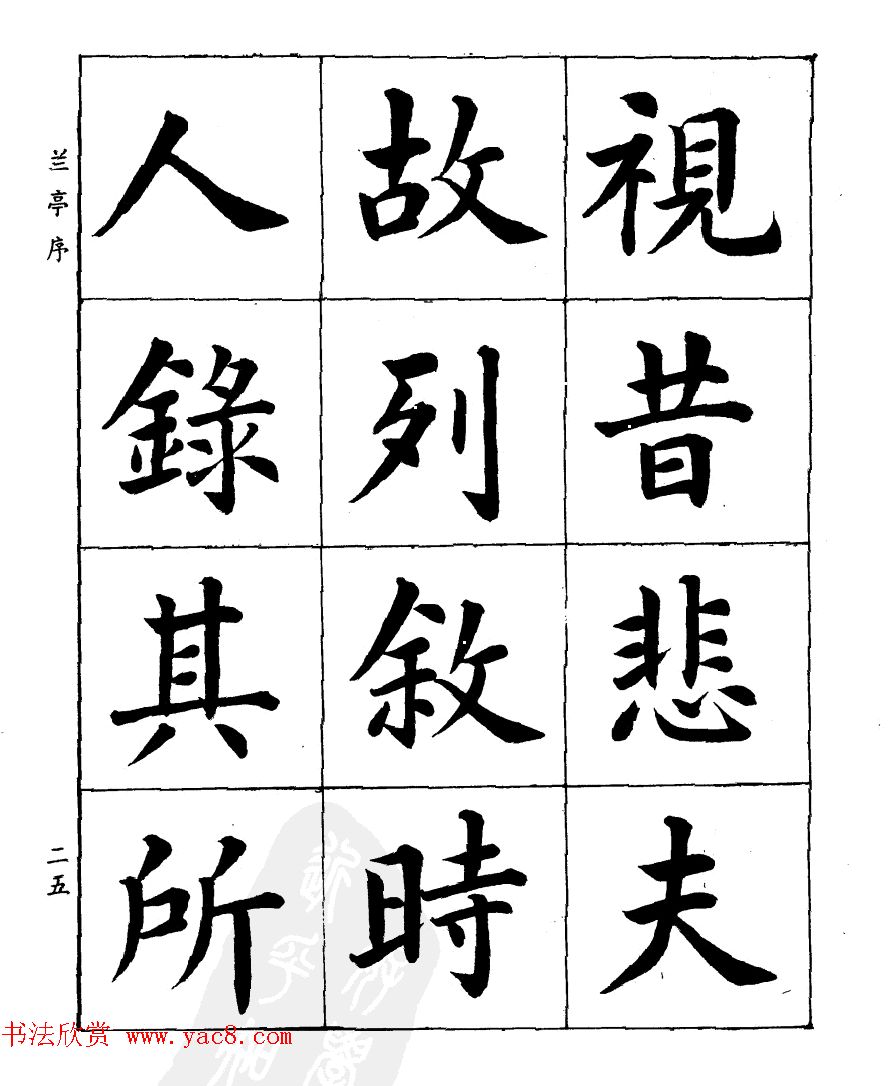 視昔悲夫
故列敘時
人錄其所
兰亭序
二五
书法欣赏 www.yac8.com